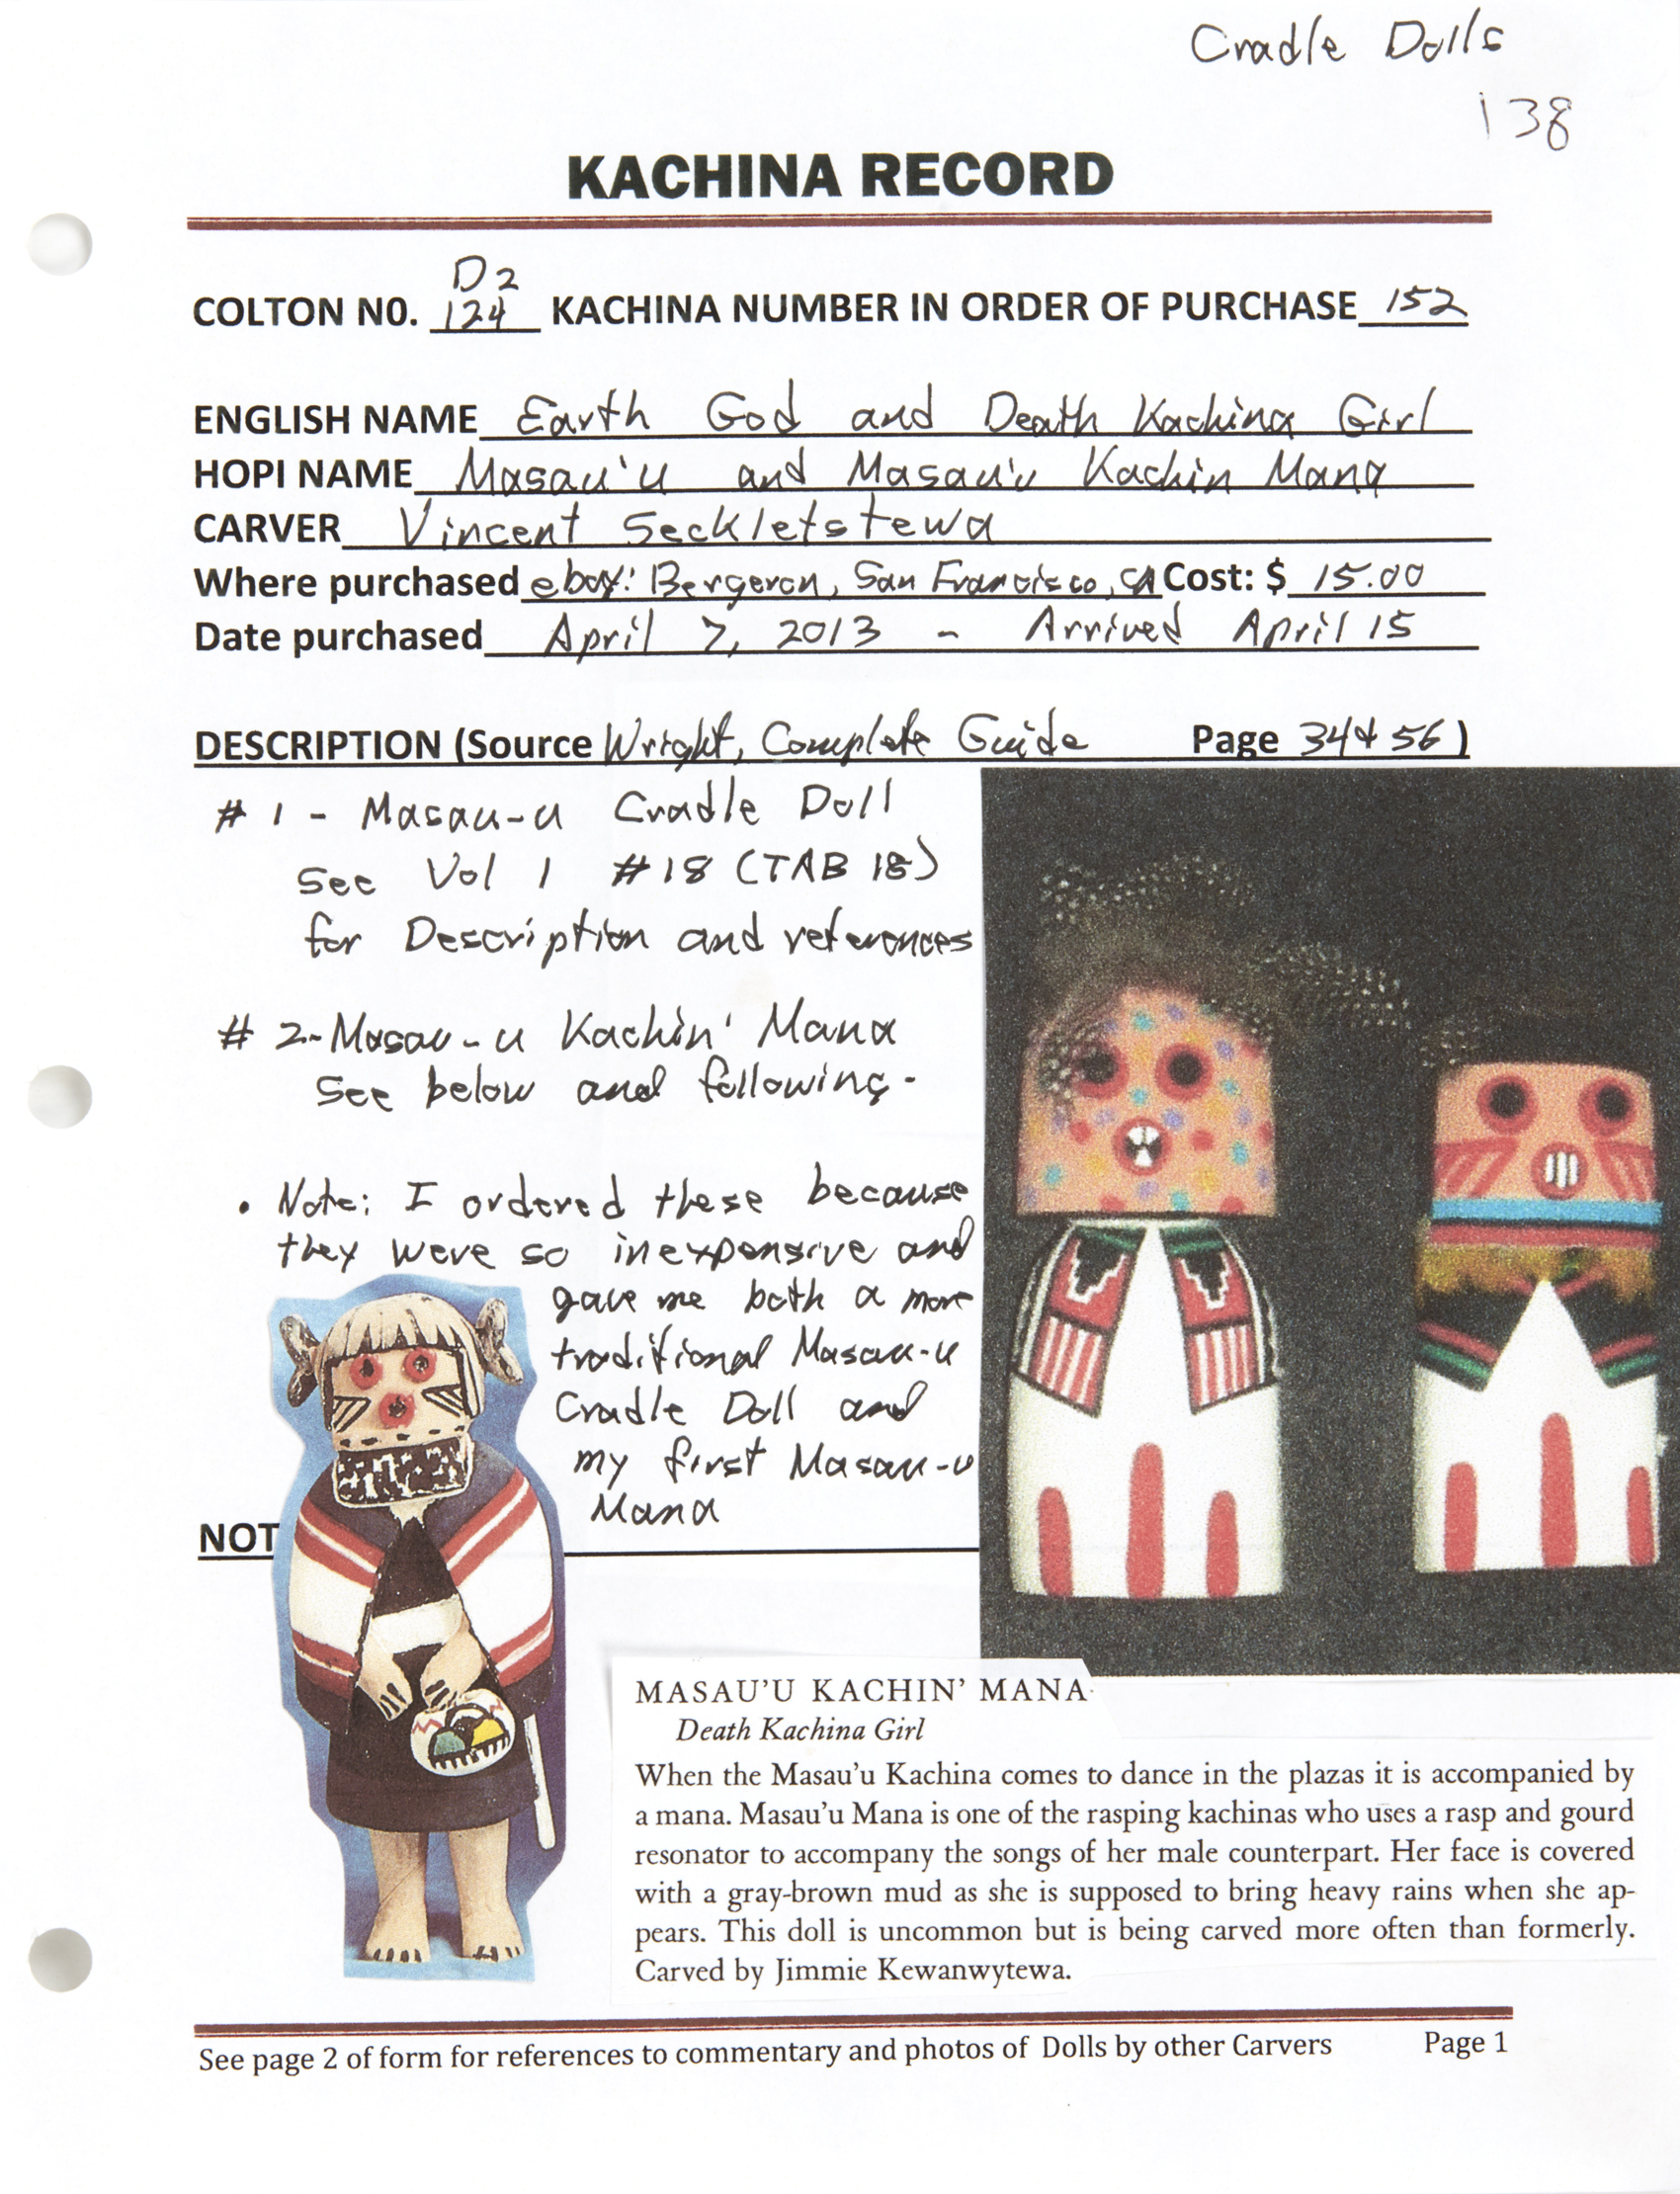 Cradle Dolls
138
KACHINA RECORD
D2
COLTON NO. 124 KACHINA NUMBER IN ORDER OF PURCHASE 152
ENGLISH NAME Earth God and Death Kachina Girl
HOPI NAME Masau'u and Masau'u Kachin Mana
CARVER Vincent Seckletstewa
Where purchased ebay: Bergeron, San Francisco, CA Cost: $ 15.00
Date purchased April 7, 2013 - Arrived April 15
DESCRIPTION (Source Wright, Complete Guide Page 34 & 56)
# 1 - Masau-u Cradle Doll
See Vol 1 #18 (TAB 18)
for Description and references
# 2 - Masau-u Kachin' Mana
See below and following.
• Note: I ordered these because
they were so inexpensive and
gave me both a more
traditional Masau-u
Cradle Doll and
my first Masau-u
Mana
NOT
MASAU'U KACHIN' MANA
Death Kachina Girl
When the Masau'u Kachina comes to dance in the plazas it is accompanied by
a mana. Masau'u Mana is one of the rasping kachinas who uses a rasp and gourd
resonator to accompany the songs of her male counterpart. Her face is covered
with a gray-brown mud as she is supposed to bring heavy rains when she ap-
pears. This doll is uncommon but is being carved more often than formerly.
Carved by Jimmie Kewanwytewa.
See page 2 of form for references to commentary and photos of Dolls by other Carvers Page 1